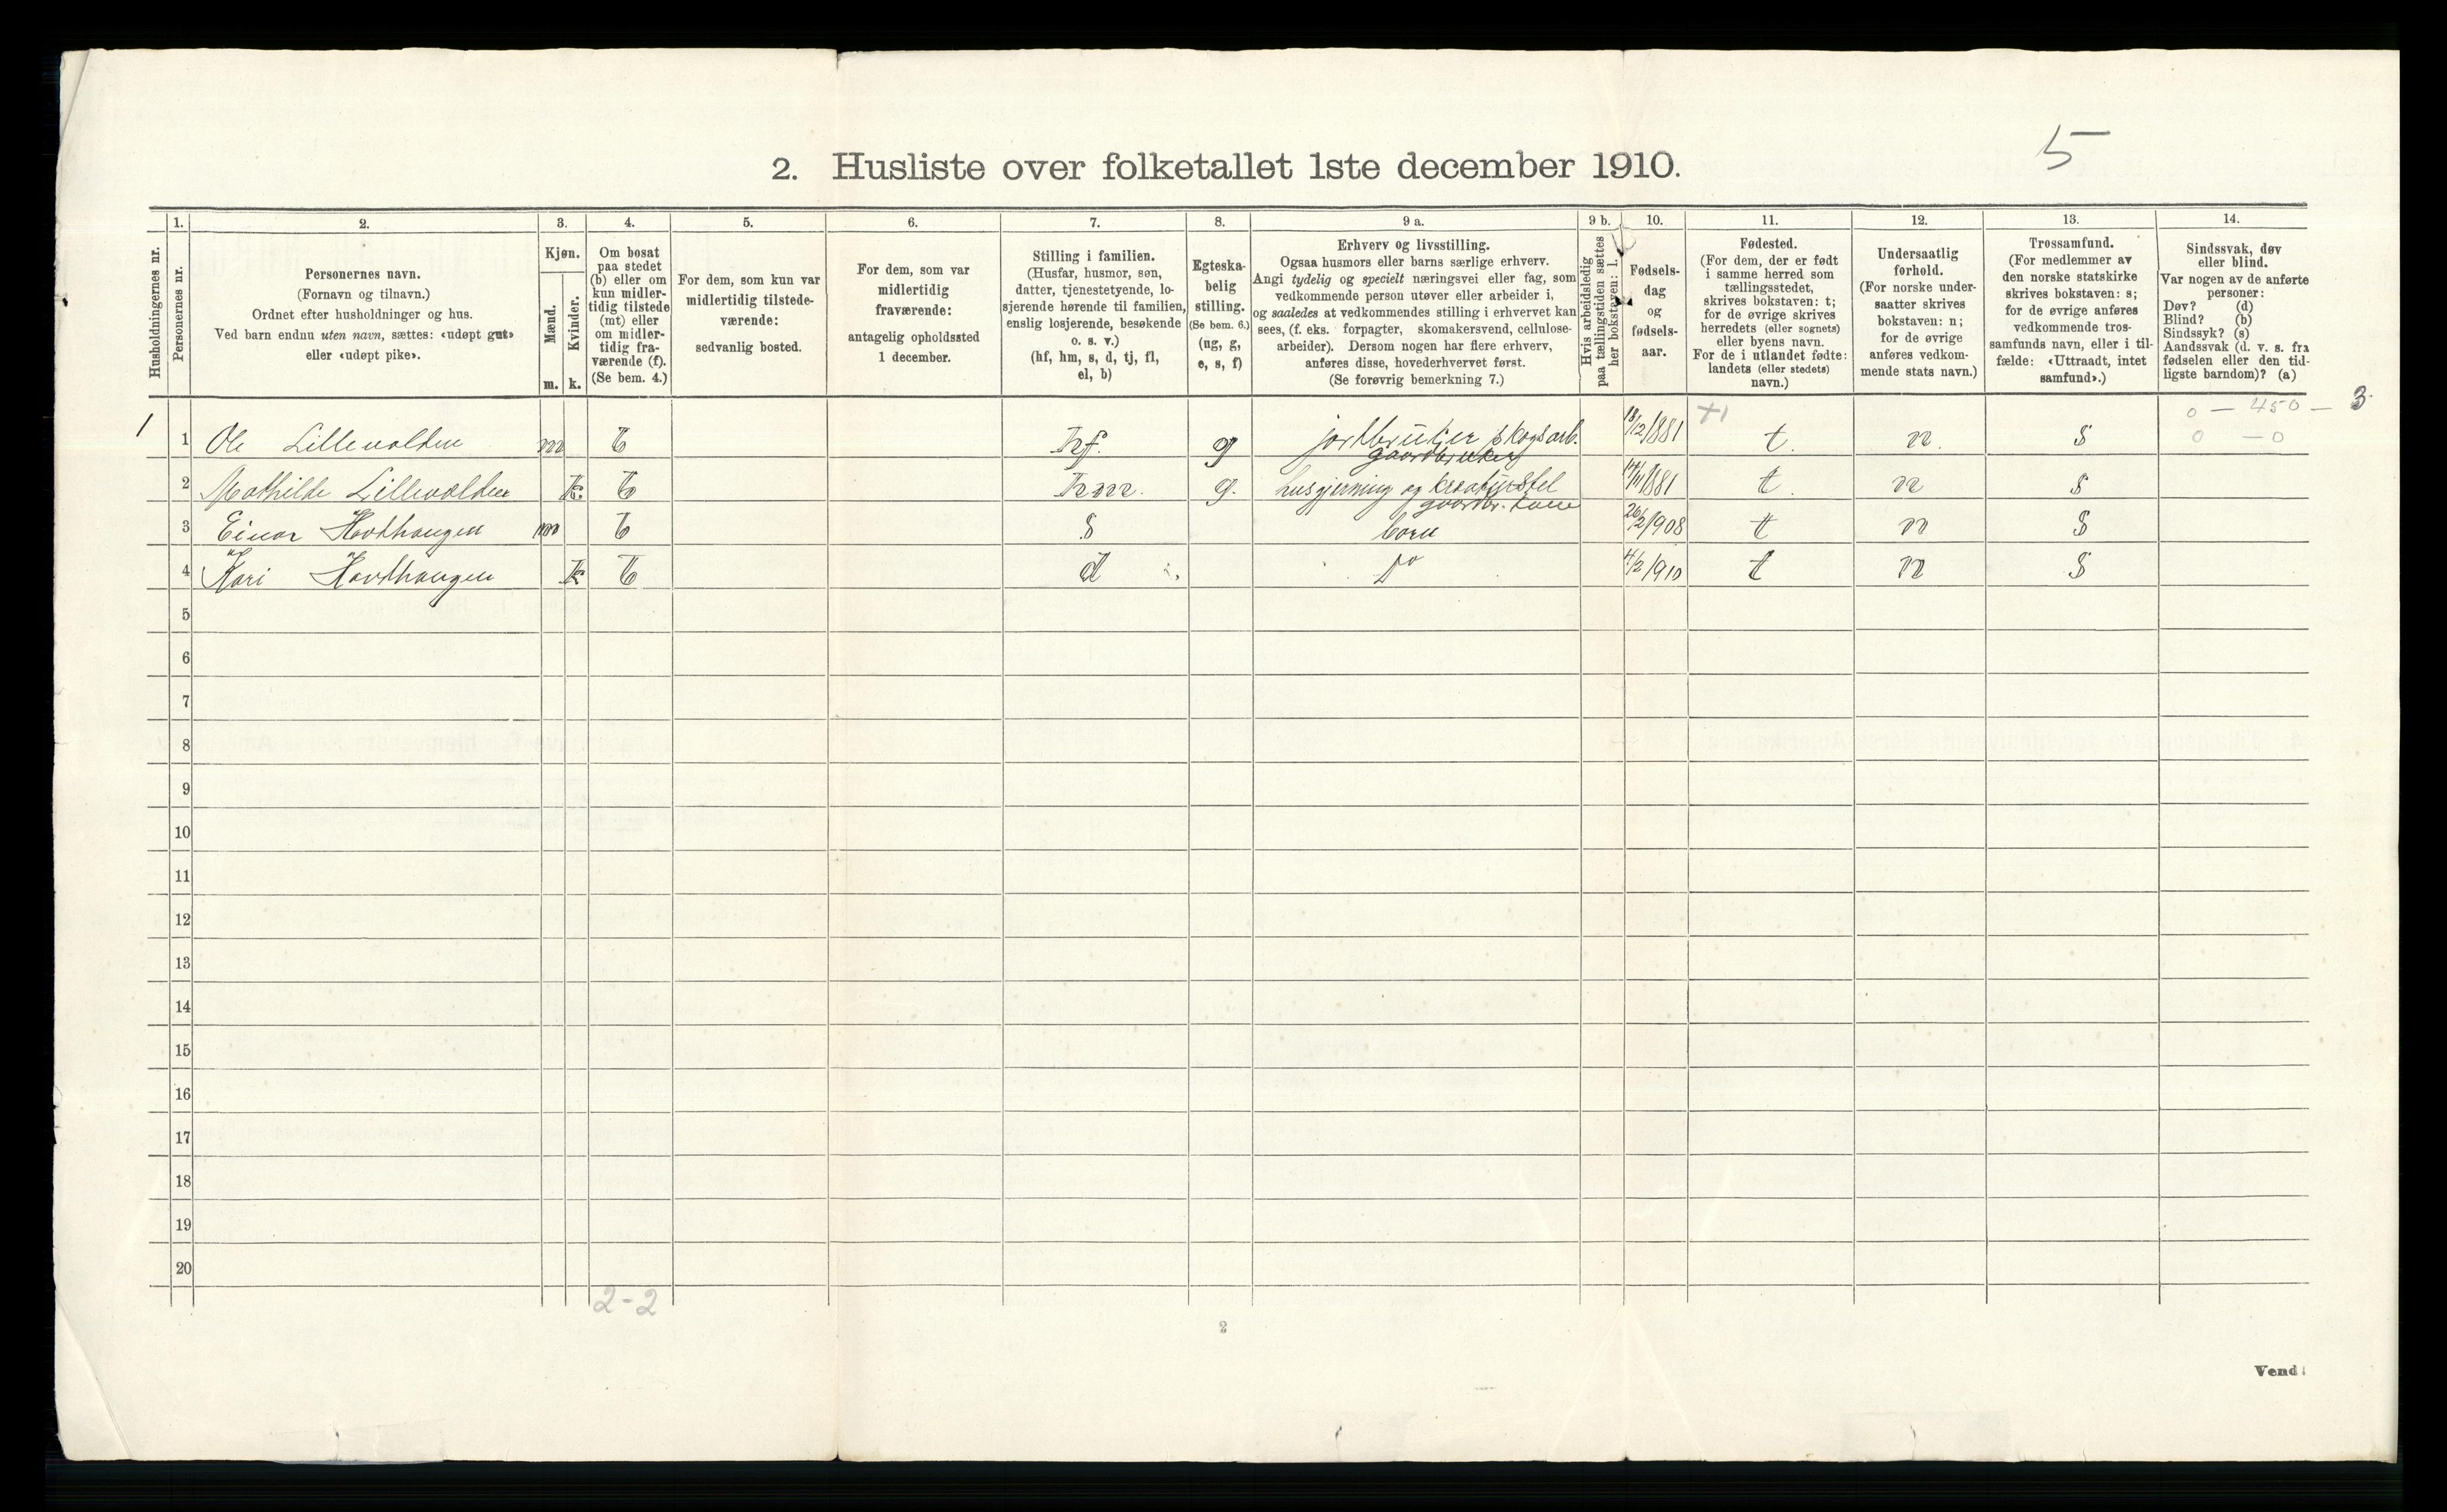 5
2. Husliste over folketallet 1ste december 1910.
1. 2. 3. 4. 5. 6. 7. 8. 9 a. 9 b. 10. 11. 12. 13. 14.
Husholdningernes nr.
Personernes nr.
Personernes navn.
(Fornavn og tilnavn.)
Ordnet efter husholdninger og hus.
Ved barn endnu uten navn, sættes: «udøpt gut»
eller «udøpt pike».
Kjøn.
Mænd.
m.
Kvinder.
k.
Om bosat
paa stedet
(b) eller om
kun midler-
tidig tilstede
(mt) eller
om midler-
tidig fra-
værende (f).
(Se bem. 4.)
For dem, som kun var
midlertidig tilstede-
værende:
sedvanlig bosted.
For dem, som var
midlertidig
fraværende:
antagelig opholdssted
1 december.
Stilling i familien.
(Husfar, husmor, søn,
datter, tjenestetyende, lo-
sjerende hørende til familien,
enslig losjerende, besøkende
o. s. v.)
(hf, hm, s, d, tj, fl,
el, b)
Egteska-
belig
stilling.
(Se bem. 6.)
(ug, g,
e, s, f)
Erhverv og livsstilling.
Ogsaa husmors eller barns særlige erhverv.
Angi tydelig og specielt næringsvei eller fag, som
vedkommende person utøver eller arbeider i,
og saaledes at vedkommendes stilling i erhvervet kan
sees, (f. eks. forpagter, skomakersvend, cellulose-
arbeider). Dersom nogen har flere erhverv,
anføres disse, hovederhvervet først.
(Se forøvrig bemerkning 7.)
Hvis arbeidsledig
paa tællingstiden sættes
her bokstaven: l.
Fødsels-
dag
og
fødsels-
aar.
Fødested.
(For dem, der er født
i samme herred som
tællingsstedet,
skrives bokstaven: t;
for de øvrige skrives
herredets (eller sognets)
eller byens navn.
For de i utlandet fødte:
landets (eller stedets)
navn.)
Undersaatlig
forhold.
(For norske under-
saatter skrives
bokstaven: n;
for de øvrige
anføres vedkom-
mende stats navn.)
Trossamfund.
(For medlemmer av
den norske statskirke
skrives bokstaven: s;
for de øvrige anføres
vedkommende tros-
samfunds navn, eller i til-
fælde: «Uttraadt, intet
samfund».)
Sindssvak, døv
eller blind.
Var nogen av de anførte
personer:
Døv? (d)
Blind? (b)
Sindssyk? (s)
Aandssvak (d. v. s. fra
fødselen eller den tid-
ligste barndom)? (a)
0 – 450 – 3
1 1 Ole Lillevolden m b hf. g jordbruker skogsarb. 18/12/881 t. n. s 0 – 0
gaardbruker
2 Mathilde Lillevolden k. b hm. g. husgjerning og kreaturstel 14/11/881 t. n s
gaardbr. kone
3 Einar Hovdhaugen m b s barn 26/2/908 t n s
4 Kari Hovdhaugen k b d Do 4/2/910 t n s
5
6
7
8
9
10
11
12
13
14
15
16
17
18
19
20
2-2
2
Vend!